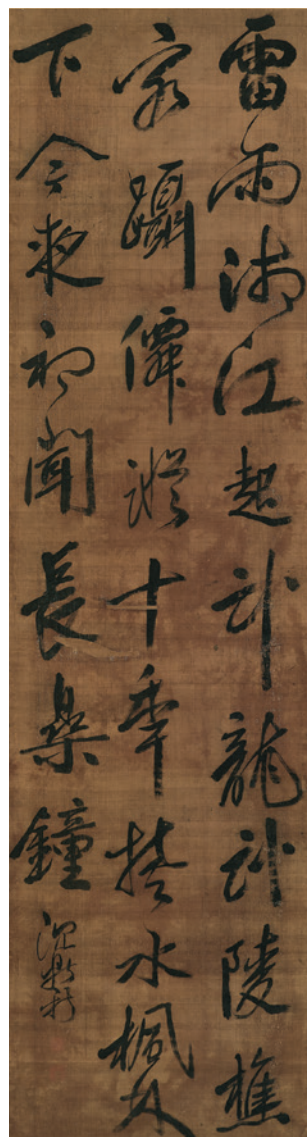 雷雨湘江起卧龍卧陵樵
客躡僊蹤十秊楚水楓林
下今夜初聞長樂鐘